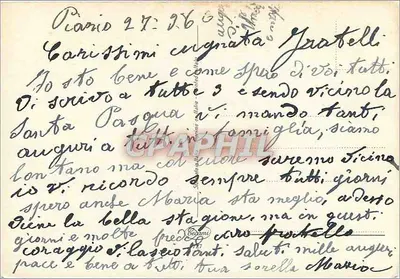 Piario 27-3-6
Carissimi cugnata Fratelli
Io sto bene e come spero di voi tutti
Vi scrivo a tutte 3 esendo vicino la
Santa Pasqua vi mando tanti
auguri a tutti in famiglia, siamo
lontano ma col cuore saremo vicina
io vi ricordo sempre tutti giorni
spero anche Maria sta meglio, adesso
viene la bella stagione, ma in questi
giorni e molto freddo, caro fratello
coraggio vi lascio tanti saluti mille auguri
pace e bene a tutti, tua sorella Maria
DELPHIL